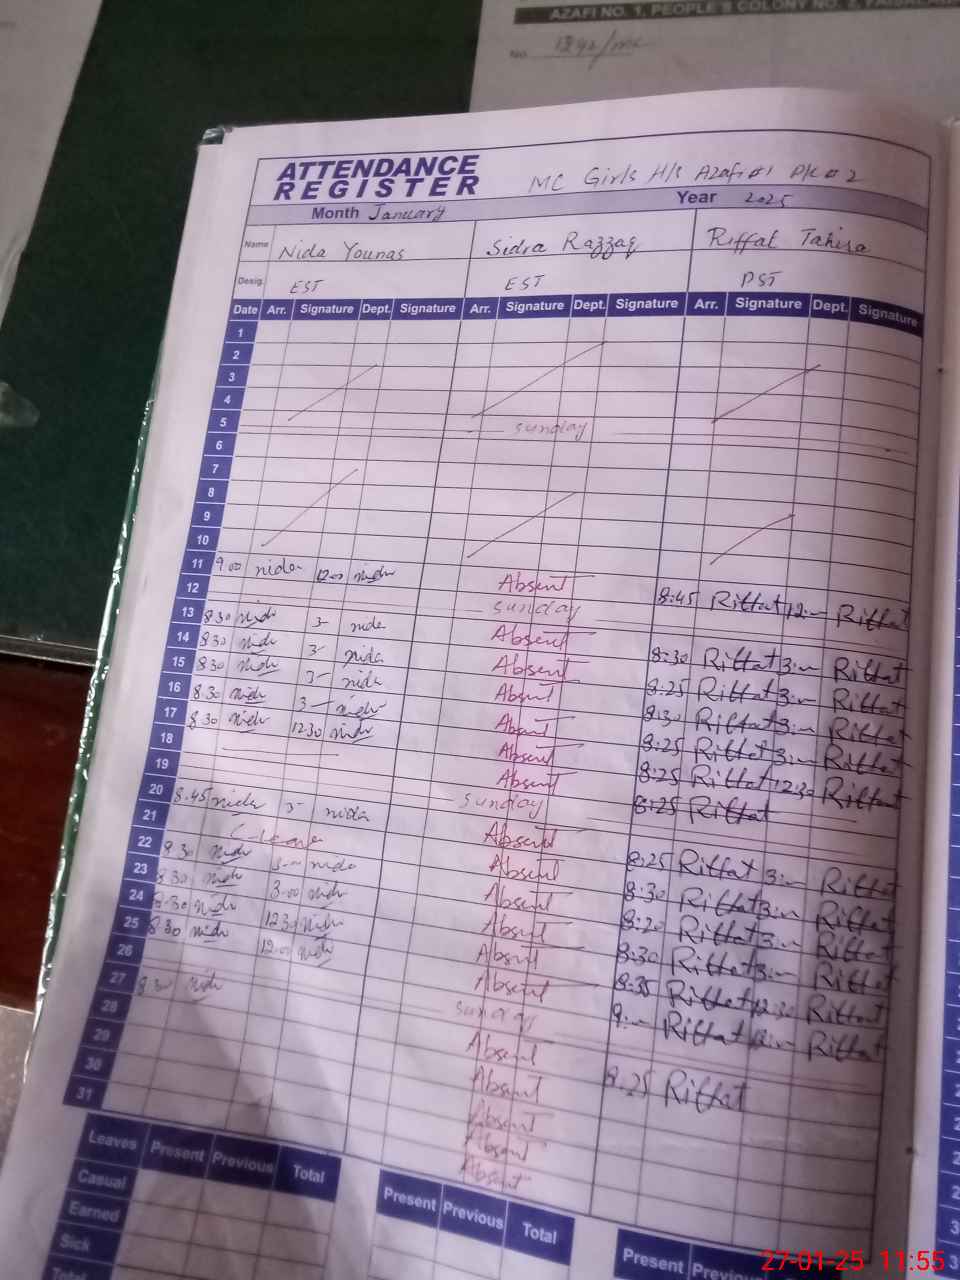 AZAFI NO. 1, PEOPLE'S COLONY NO. 2,
No.
ATTENDANCE REGISTER MC Girls H/s Azafi #1 P/C # 2
Month January Year 2025
Name Nida Younas Sidra Razzaq Riffat Tahira
Desig. EST EST PST
Date Arr. Signature Dept. Signature Arr. Signature Dept. Signature Arr. Signature Dept. Signature
1
2
3
4
5 sunday
6
7
8
9
10
11 9:00 nida 12:00 nida Absent 8:45 Riffat 12:— Riffat
12 sunday
13 8:30 nida 3— nida Absent 8:30 Riffat 3:— Riffat
14 8:30 nida 3— nida Absent 8:25 Riffat 3:— Riffat
15 8:30 nida 3— nida Absent 8:30 Riffat 3:— Riffat
16 8:30 nida 3— nida Absent 8:25 Riffat 3:— Riffat
17 8:30 nida 12:30 nida Absent 8:25 Riffat 12:30 Riffat
18 Absent 8:25 Riffat
19 sunday
20 8:45 nida 3— nida Absent 8:25 Riffat 3:— Riffat
21 C-Leave Absent 8:30 Riffat 3:— Riffat
22 8:30 nida 3— nida Absent 8:20 Riffat 3:— Riffat
23 8:30 nida 3:00 nida Absent 8:30 Riffat 3:— Riffat
24 8:30 nida 12:30 nida Absent 8:35 Riffat 12:30 Riffat
25 8:30 nida 12:00 nida Absent 9:— Riffat 12:— Riffat
26 sunday
27 8:30 nida Absent 8:25 Riffat
28 Absent
29 Absent
30 Absent
31 Absent
Leaves Present Previous Total Present Previous Total Present Previous
Casual
Earned
Sick
Total
27-01-25 11:55